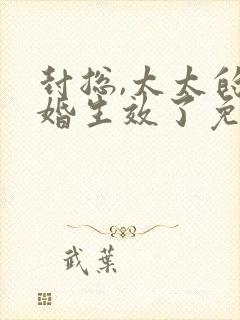 封总,太太的
婚生效了免
武葉